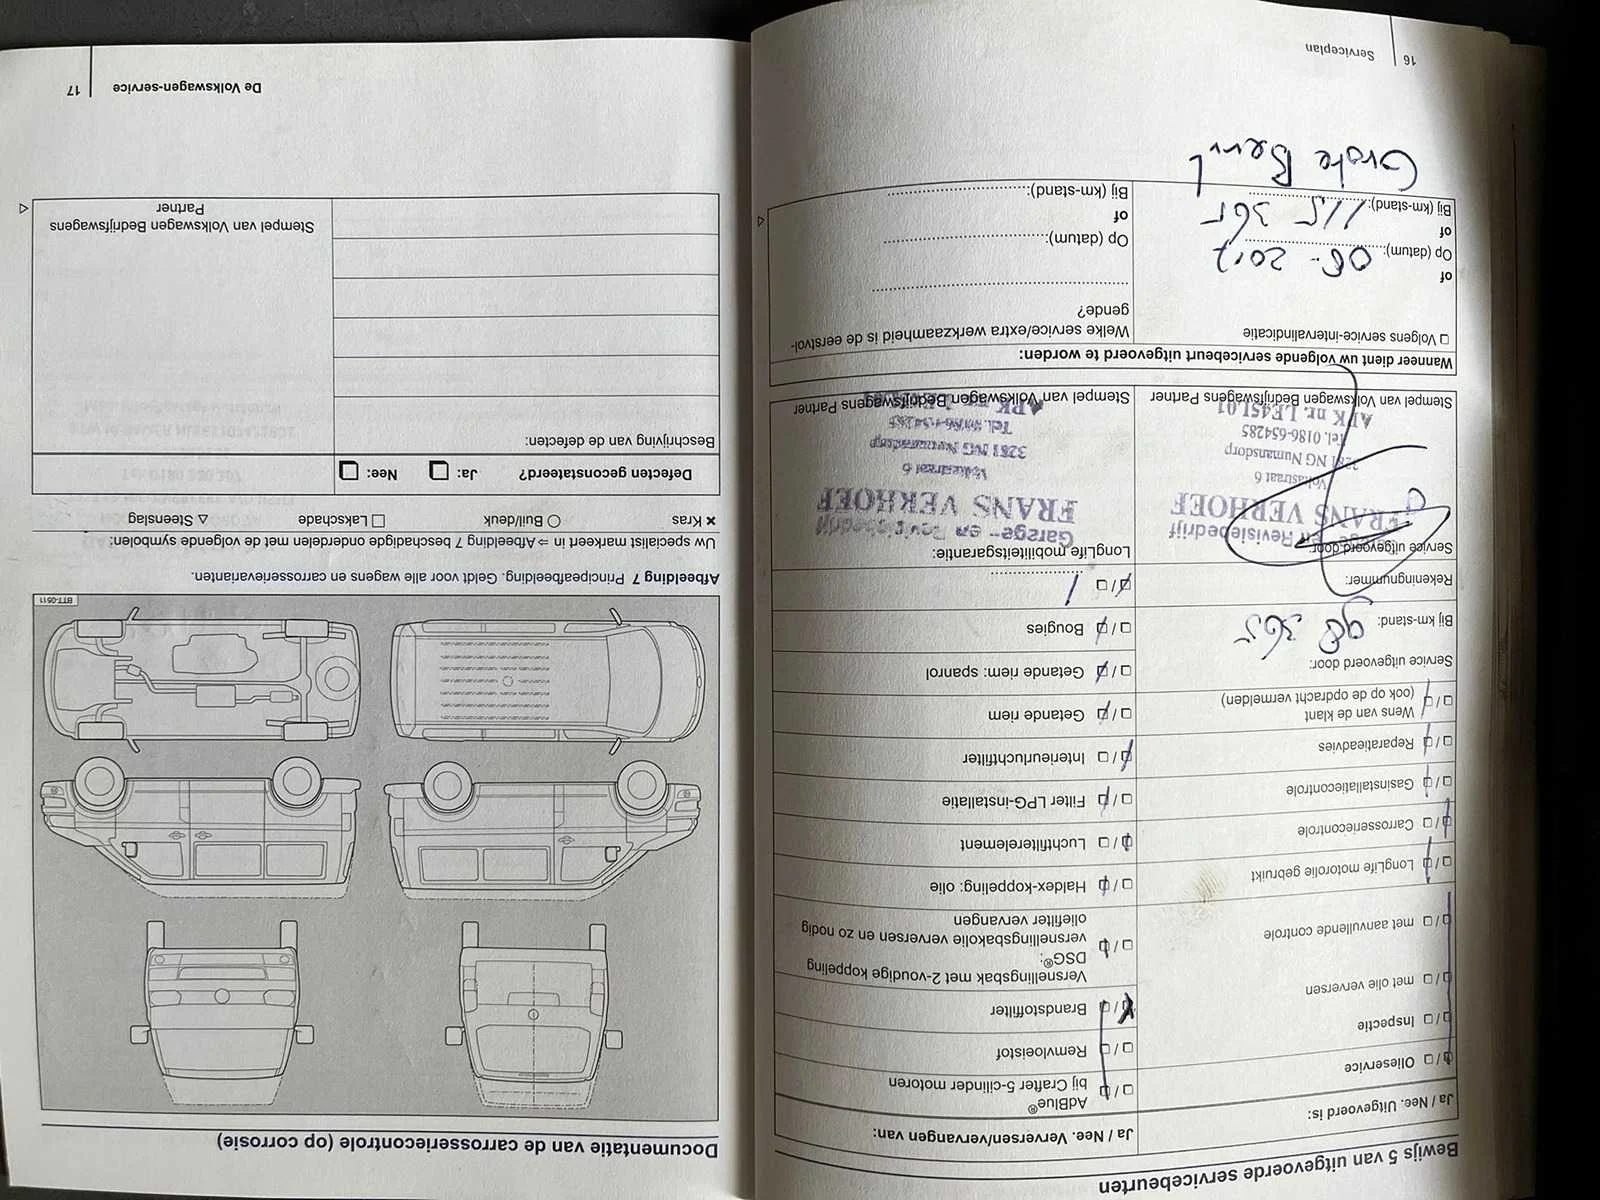 Bewijs 5 van uitgevoerde servicebeurten
Ja / Nee. Uitgevoerd is:
Olieservice
Inspectie
met olie verversen
met aanvullende controle
LongLife motorolie gebruikt
Carrosseriecontrole
Gasinstallatiecontrole
Reparatieadvies
Wens van de klant
(ook op de opdracht vermelden)
Service uitgevoerd door:
Bij km-stand: 98 365
Rekeningnummer:
Service uitgevoerd door:
Revisiebedrijf
FRANS VERHOEF
Volkastraat 6
3281 NG Numansdorp
Tel. 0186-654285
APK nr. LE45L01
Stempel van Volkswagen Bedrijfswagens Partner
Ja / Nee. Verversen/vervangen van:
AdBlue®
bij Crafter 5-cilinder motoren
Remvloeistof
Brandstoffilter
Versnellingsbak met 2-voudige koppeling
DSG®:
versnellingsbakolie verversen en zo nodig
oliefilter vervangen
Haldex-koppeling: olie
Luchtfilterelement
Filter LPG-installatie
Interieurluchtfilter
Getande riem
Getande riem: spanrol
Bougies
LongLife mobiliteitsgarantie:
Garage- en Revisiebedrijf
FRANS VERHOEF
Volkastraat 6
3281 NG Numansdorp
Tel. 0186-654285
Stempel van Volkswagen Bedrijfswagens Partner
Wanneer dient uw volgende servicebeurt uitgevoerd te worden:
Volgens service-intervalindicatie
of
Op (datum): 05-2017
of
Bij (km-stand): 115 365
Grote Beurt
Welke service/extra werkzaamheid is de eerstvol-
gende?
Op (datum):
of
Bij (km-stand):
16 Serviceplan
Documentatie van de carrosseriecontrole (op corrosie)
BTT-0511
Afbeelding 7 Principeafbeelding. Geldt voor alle wagens en carrosserievarianten.
Uw specialist markeert in ⇒ Afbeelding 7 beschadigde onderdelen met de volgende symbolen:
× Kras ○ Buil/deuk □ Lakschade △ Steenslag
Defecten geconstateerd? Ja: Nee:
Beschrijving van de defecten:
Stempel van Volkswagen Bedrijfswagens
Partner
De Volkswagen-service 17